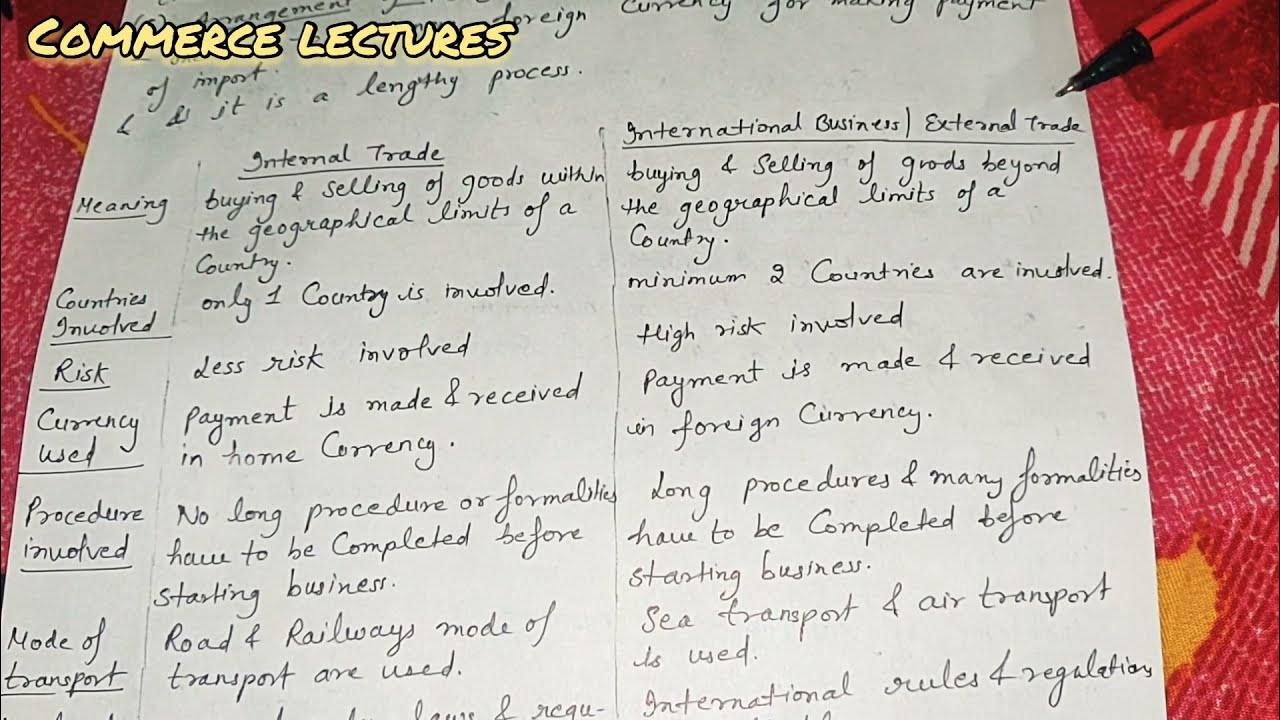 COMMERCE LECTURES
Arrangement of
foreign currency for making payment
of import.
& it is a lengthy process.
Internal Trade
International Business/ External Trade
Meaning
buying & selling of goods within
the geographical limits of a
Country.
buying & Selling of goods beyond
the geographical limits of a
Country.
Countries
Involved
only 1 Country is involved.
minimum 2 Countries are involved.
Risk
Less risk involved
High risk involved
Currency
used
Payment is made & received
in home Currency.
Payment is made & received
in foreign Currency.
Procedure
involved
No long procedure or formalities
have to be Completed before
starting business.
Long procedures & many formalities
have to be Completed before
starting business.
Mode of
transport
Road & Railways mode of
transport are used.
Sea transport & air transport
is used.
laws & regu-
International rules & regulations